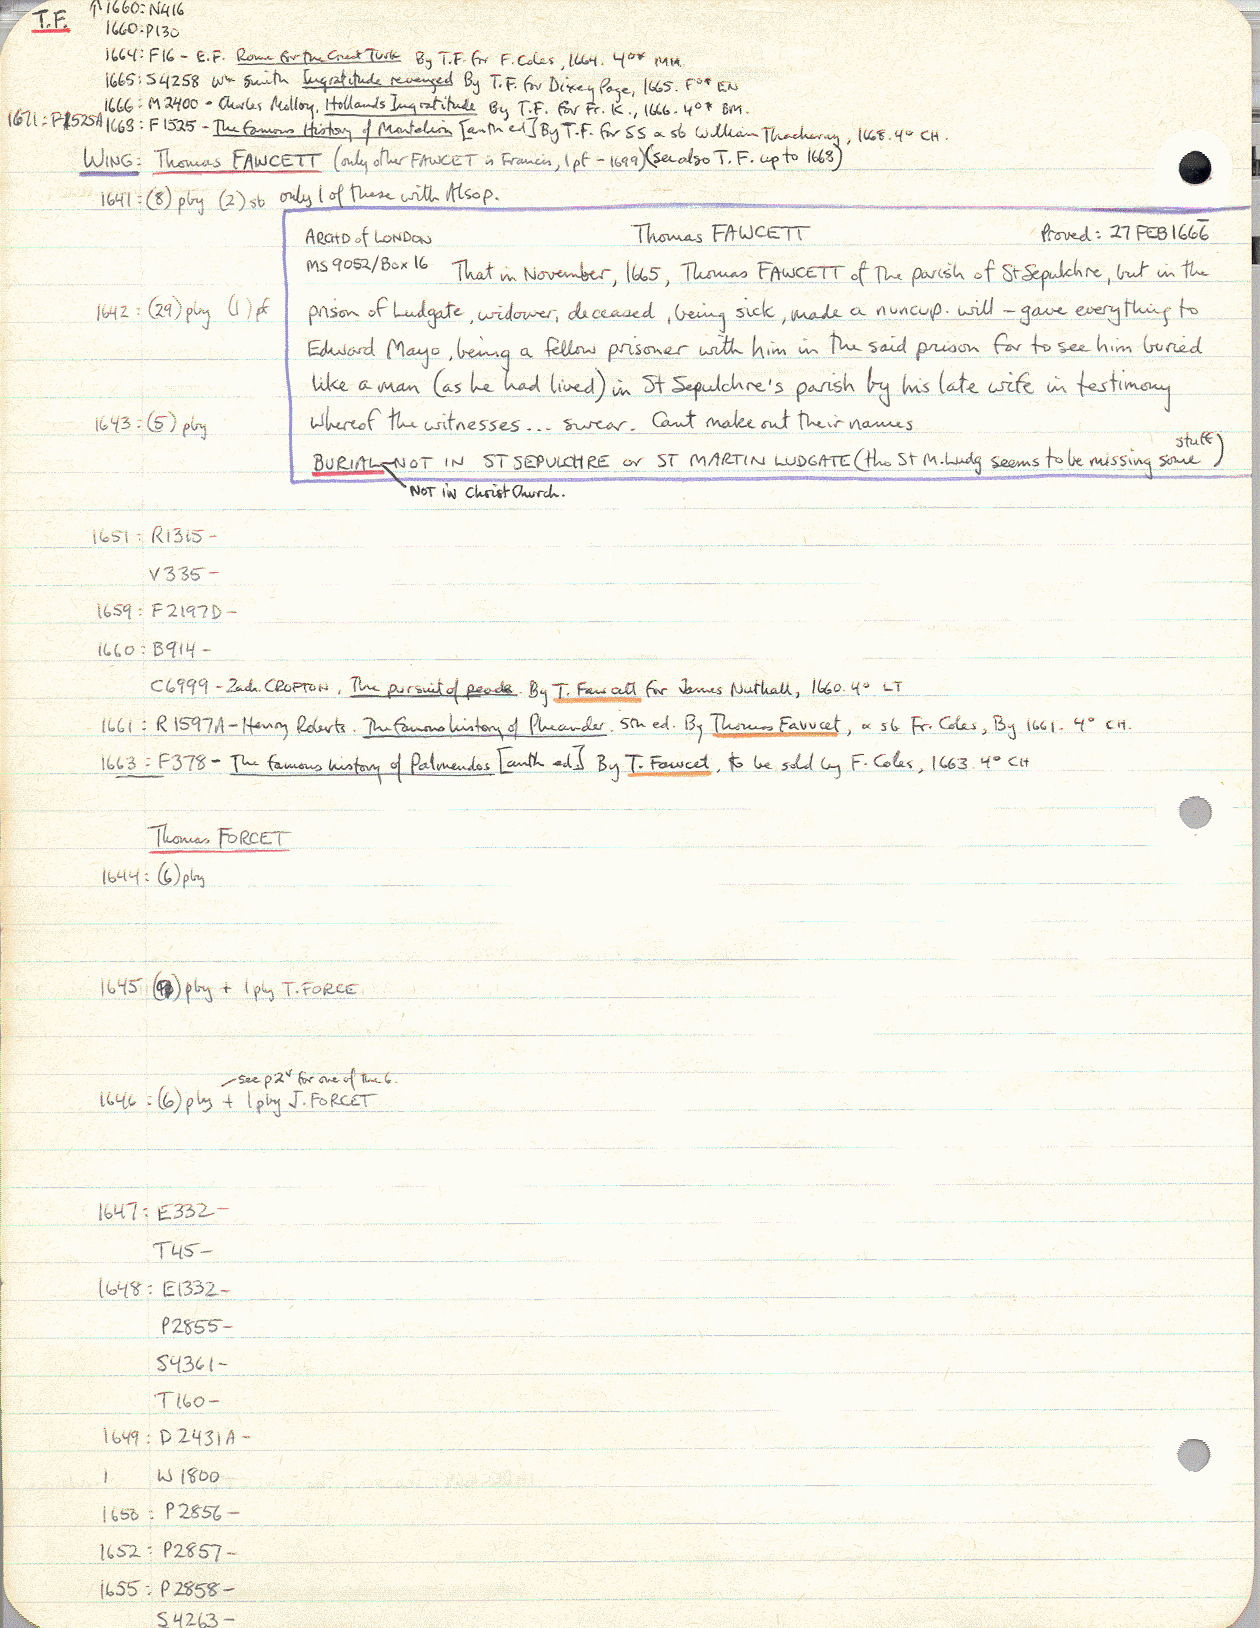 T.F.
↑1660: N416
1660: P130
1664: F16 - E.F. Rome for the Great Turk By T.F. for F. Coles, 1664. 4°* MH.
1665: S4258 Wm Smith Ingratitude revenged By T.F. for Dixey Page, 1665. F°* EN
1666: M2400 - Charles Molloy. Hollands Ingratitude By T.F. for Fr. K., 1666. 4°* BM.
1671: F1525A 1668: F1525 - The Famous History of Montelion [anth ed] By T.F. for SS & sb William Thackeray, 1668. 4° CH.
WING: Thomas FAWCETT (only other FAWCET is Francis, 1pf - 1699) (see also T.F. up to 1668)
1641: (8) pby (2) sb only 1 of these with Alsop.
ARCHD of LONDON Thomas FAWCETT Proved: 27 FEB 1666
MS 9052/Box 16 That in November, 1665, Thomas FAWCETT of the parish of St Sepulchre, but in the
1642: (29) pby (1) pf prison of Ludgate, widower, deceased, being sick, made a nuncup. will - gave everything to
Edward Mayo, being a fellow prisoner with him in the said prison for to see him buried
like a man (as he had lived) in St Sepulchre's parish by his late wife in testimony
1643: (5) pby whereof the witnesses... swear. Cant make out their names
BURIAL NOT IN ST SEPULCHRE or ST MARTIN LUDGATE (tho St M. Ludg seems to be missing some stuff)
NOT in Christ Church.
1651: R1315 -
V335 -
1659: F2197D -
1660: B914 -
C6999 - Zach. CROFTON, The pursuit of peace. By T. Fawcett for James Nuthall, 1660. 4° LT
1661: R1597A - Henry Roberts. The famous history of Pheander. 5th ed. By Thomas Fauucet, & sb Fr. Coles, By 1661. 4° CH.
1663: F378 - The famous history of Palmendos [anth ed] By T. Fawcet, to be sold by F. Coles, 1663. 4° CH
Thomas FORCET
1644: (6) pby
1645 pby + 1 pby T. FORCE
see p2v for one of the 6.
1646: (6) pby + 1 pby J. FORCET
1647: E332 -
T45 -
1648: E1332 -
P2855 -
S4361 -
T160 -
1649: D2431A -
1 W1800
1650: P2856 -
1652: P2857 -
1655: P2858 -
S4263 -